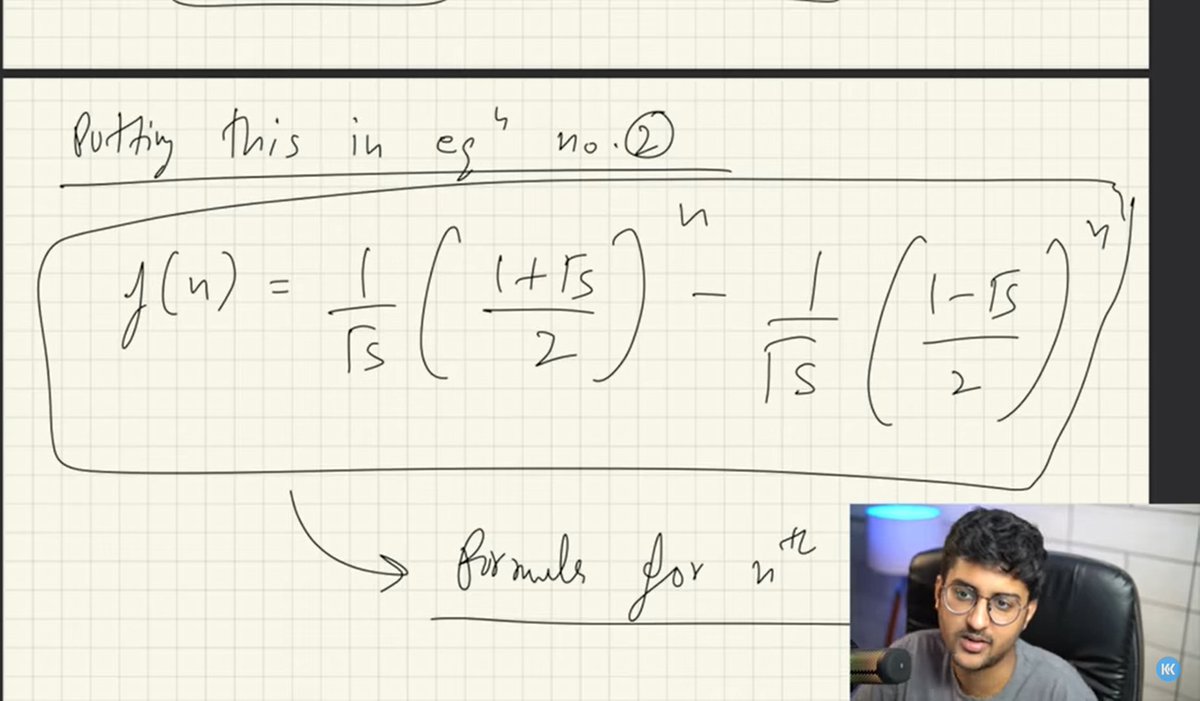 Putting this in eqⁿ no. ②
f(n) = 1/√5 ((1+√5)/2)ⁿ - 1/√5 ((1-√5)/2)ⁿ
formula for nᵗʰ
KK